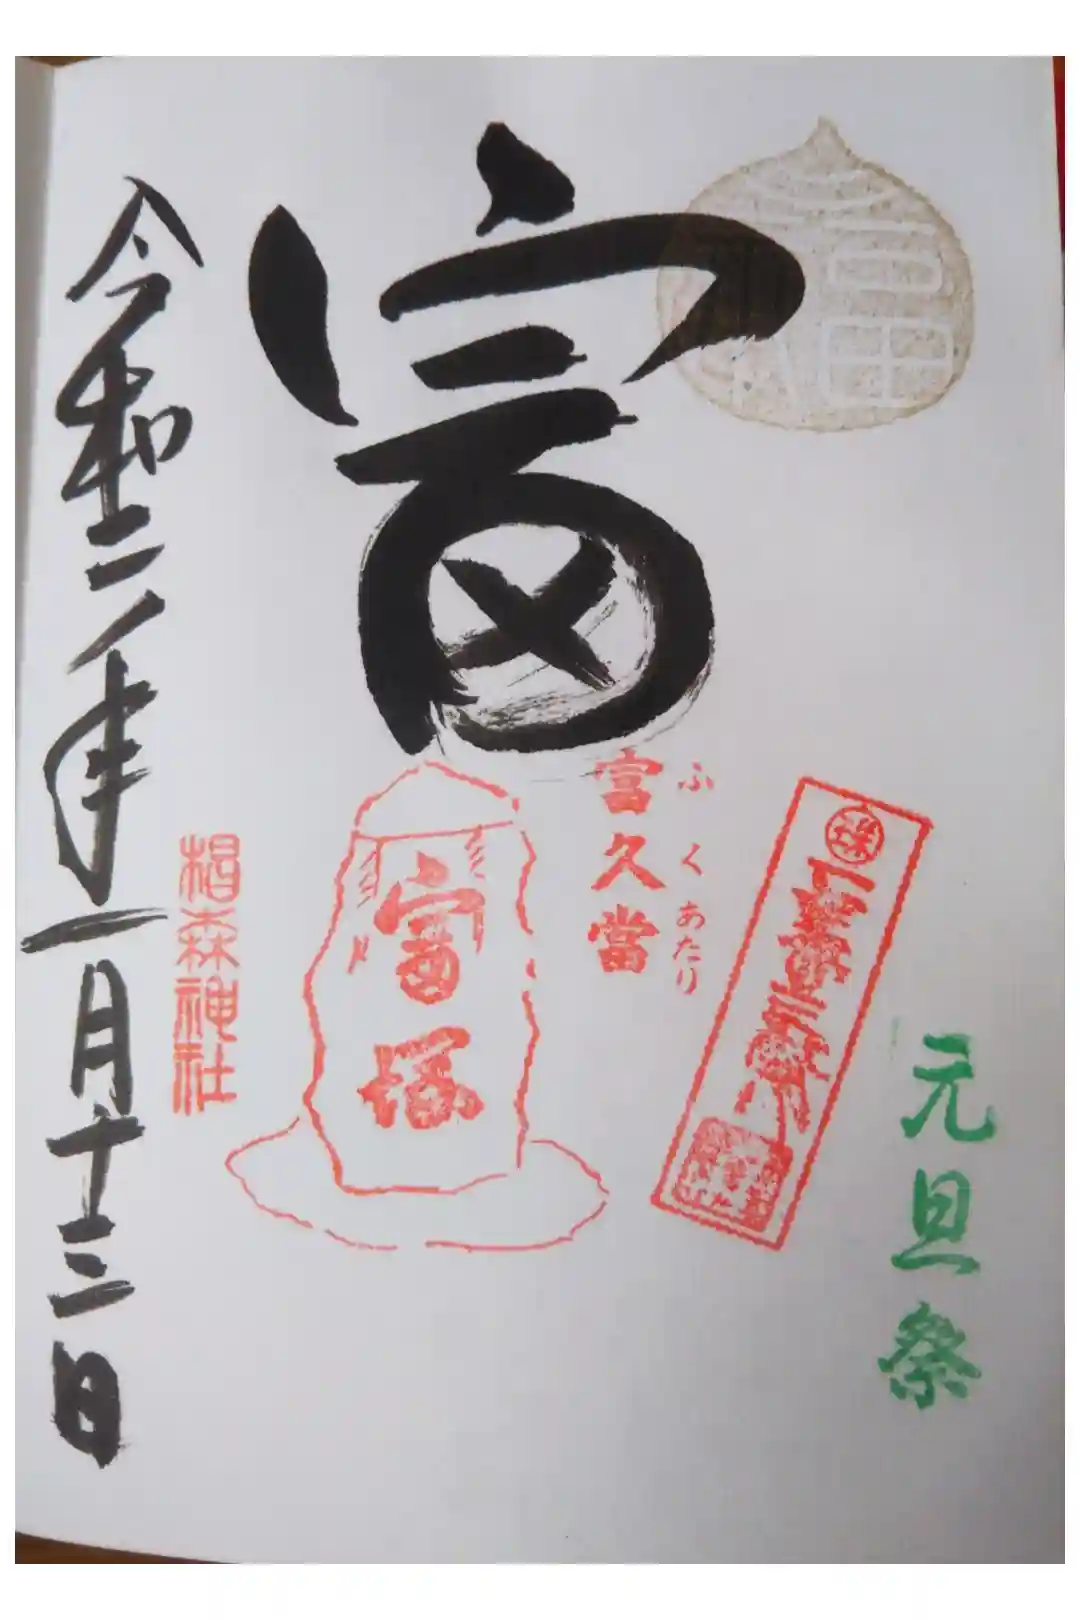 元旦祭
ふくあたり
富久當
富
富塚
椙森神社
令和二年一月十三日